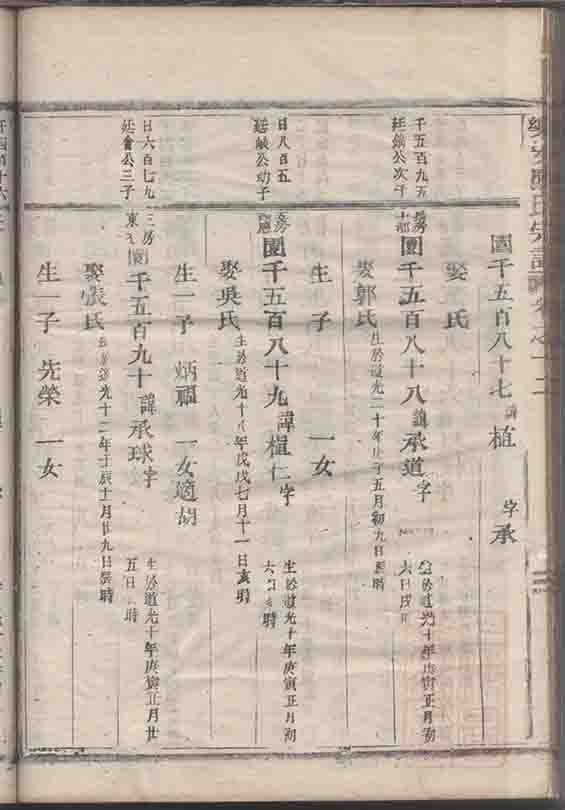 國千五百八十七諱植 字承
娶 氏
千五百九五
廷鎮公次子
國千五百八十八諱承道字 生於道光十年庚寅正月初
六日戌
娶郭氏生於道光二十年庚子五月初九日辰時
生 子 一女
日八百五
公幼子
國千五百八十九諱植仁字 生於道光十年庚寅正月初
六 時
娶吳氏生於道光十八年戊戌七月十一日亥時
生一子 炳福 一女適胡
日六百七九
廷會公三子
三房
東
國千五百九十諱承球字 生於道光十年庚寅正月廿
五日 時
娶張氏 道光十二年壬辰十一月廿九日辰時
生一子 先榮 一女